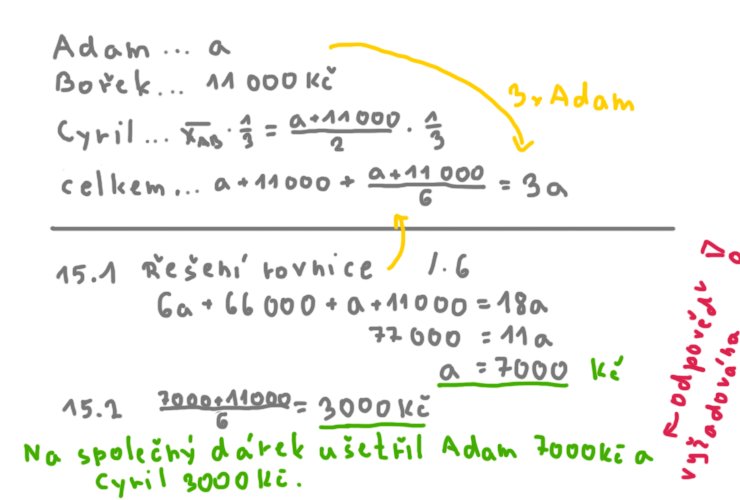 Adam ... a
Bořek... 11 000 Kč
Cyril ... x̅AB · 1/3 = (a+11000)/2 · 1/3
celkem... a+11000 + (a+11 000)/6 = 3a
3x Adam
15.1 Řešení rovnice /.6
6a + 66 000 + a+11000 = 18a
77 000 = 11a
a = 7000 Kč
15.2 (7000+11000)/6 = 3000 Kč
Na společný dárek ušetřil Adam 7000Kč a
Cyril 3000 Kč.
odpověď
vyžadována!